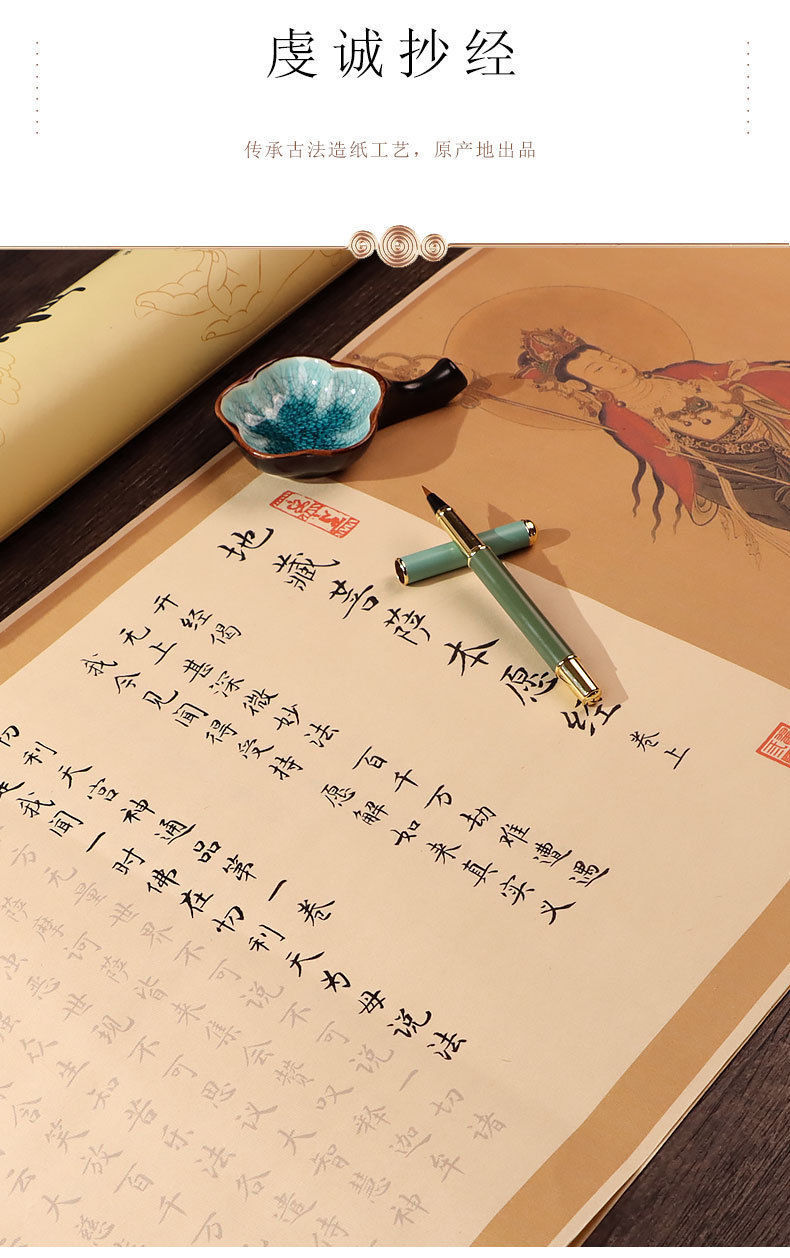 虔诚抄经
传承古法造纸工艺，原产地出品
地藏菩萨本愿经 卷上
开经偈
无上甚深微妙法 百千万劫难遭遇
我今见闻得受持 愿解如来真实义
利天宫神通品第一卷
是我闻一时佛在忉利天为母说法
方无量世界不可说不可说一切诸
萨摩诃萨皆来集会赞叹释迦牟
浊恶世现不可思议大智慧神
强众生知苦乐法各遣侍
含笑放百千万